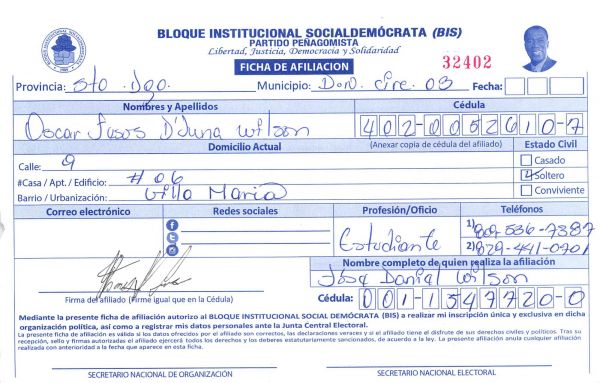 BLOQUE INSTITUCIONAL SOCIALDEMÓCRATA (BIS)
PARTIDO PEÑAGOMISTA
Libertad, Justicia, Democracia y Solidaridad
32402
FICHA DE AFILIACION
Provincia: Sto. Dgo. Municipio: D.N. Circ. 03 Fecha:
Nombres y Apellidos Cédula
Oscar D'Juna Wilson 402-0052610-7
Domicilio Actual (Anexar copia de cédula del afiliado) Estado Civil
Calle: 9 Casado
#Casa / Apt. / Edificio: # 06 Soltero
Barrio / Urbanización: Villa Maria Conviviente
Correo electrónico Redes sociales Profesión/Oficio Teléfonos
Estudiante 1) 809 536-7387
2) 829-441-0701
Nombre completo de quien realiza la afiliación
Jose Daniel Wilson
Firma del afiliado (Firme igual que en la Cédula) Cédula: 001-1547720-0
Mediante la presente ficha de afiliación autorizo al BLOQUE INSTITUCIONAL SOCIAL DEMÓCRATA (BIS) a realizar mi inscripción única y exclusiva en dicha
organización política, así como a registrar mis datos personales ante la Junta Central Electoral.
La presente ficha de afiliación es válida si los datos ofrecidos por el afiliado son correctos, las declaraciones veraces y si el afiliado tiene el disfrute de sus derechos civiles y políticos. Tras su
recepción, sello y firmas autorizadas el afiliado ejercerá todos los derechos y los deberes estatutariamente sancionados, de acuerdo a la ley. La presente afiliación anula cualquier afiliación
realizada con anterioridad a la fecha que aparece en esta ficha.
SECRETARIO NACIONAL DE ORGANIZACIÓN SECRETARIO NACIONAL ELECTORAL